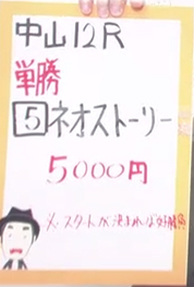 中山12R
単勝
5ネオストーリー
5000円
スタートが決まれば好勝負